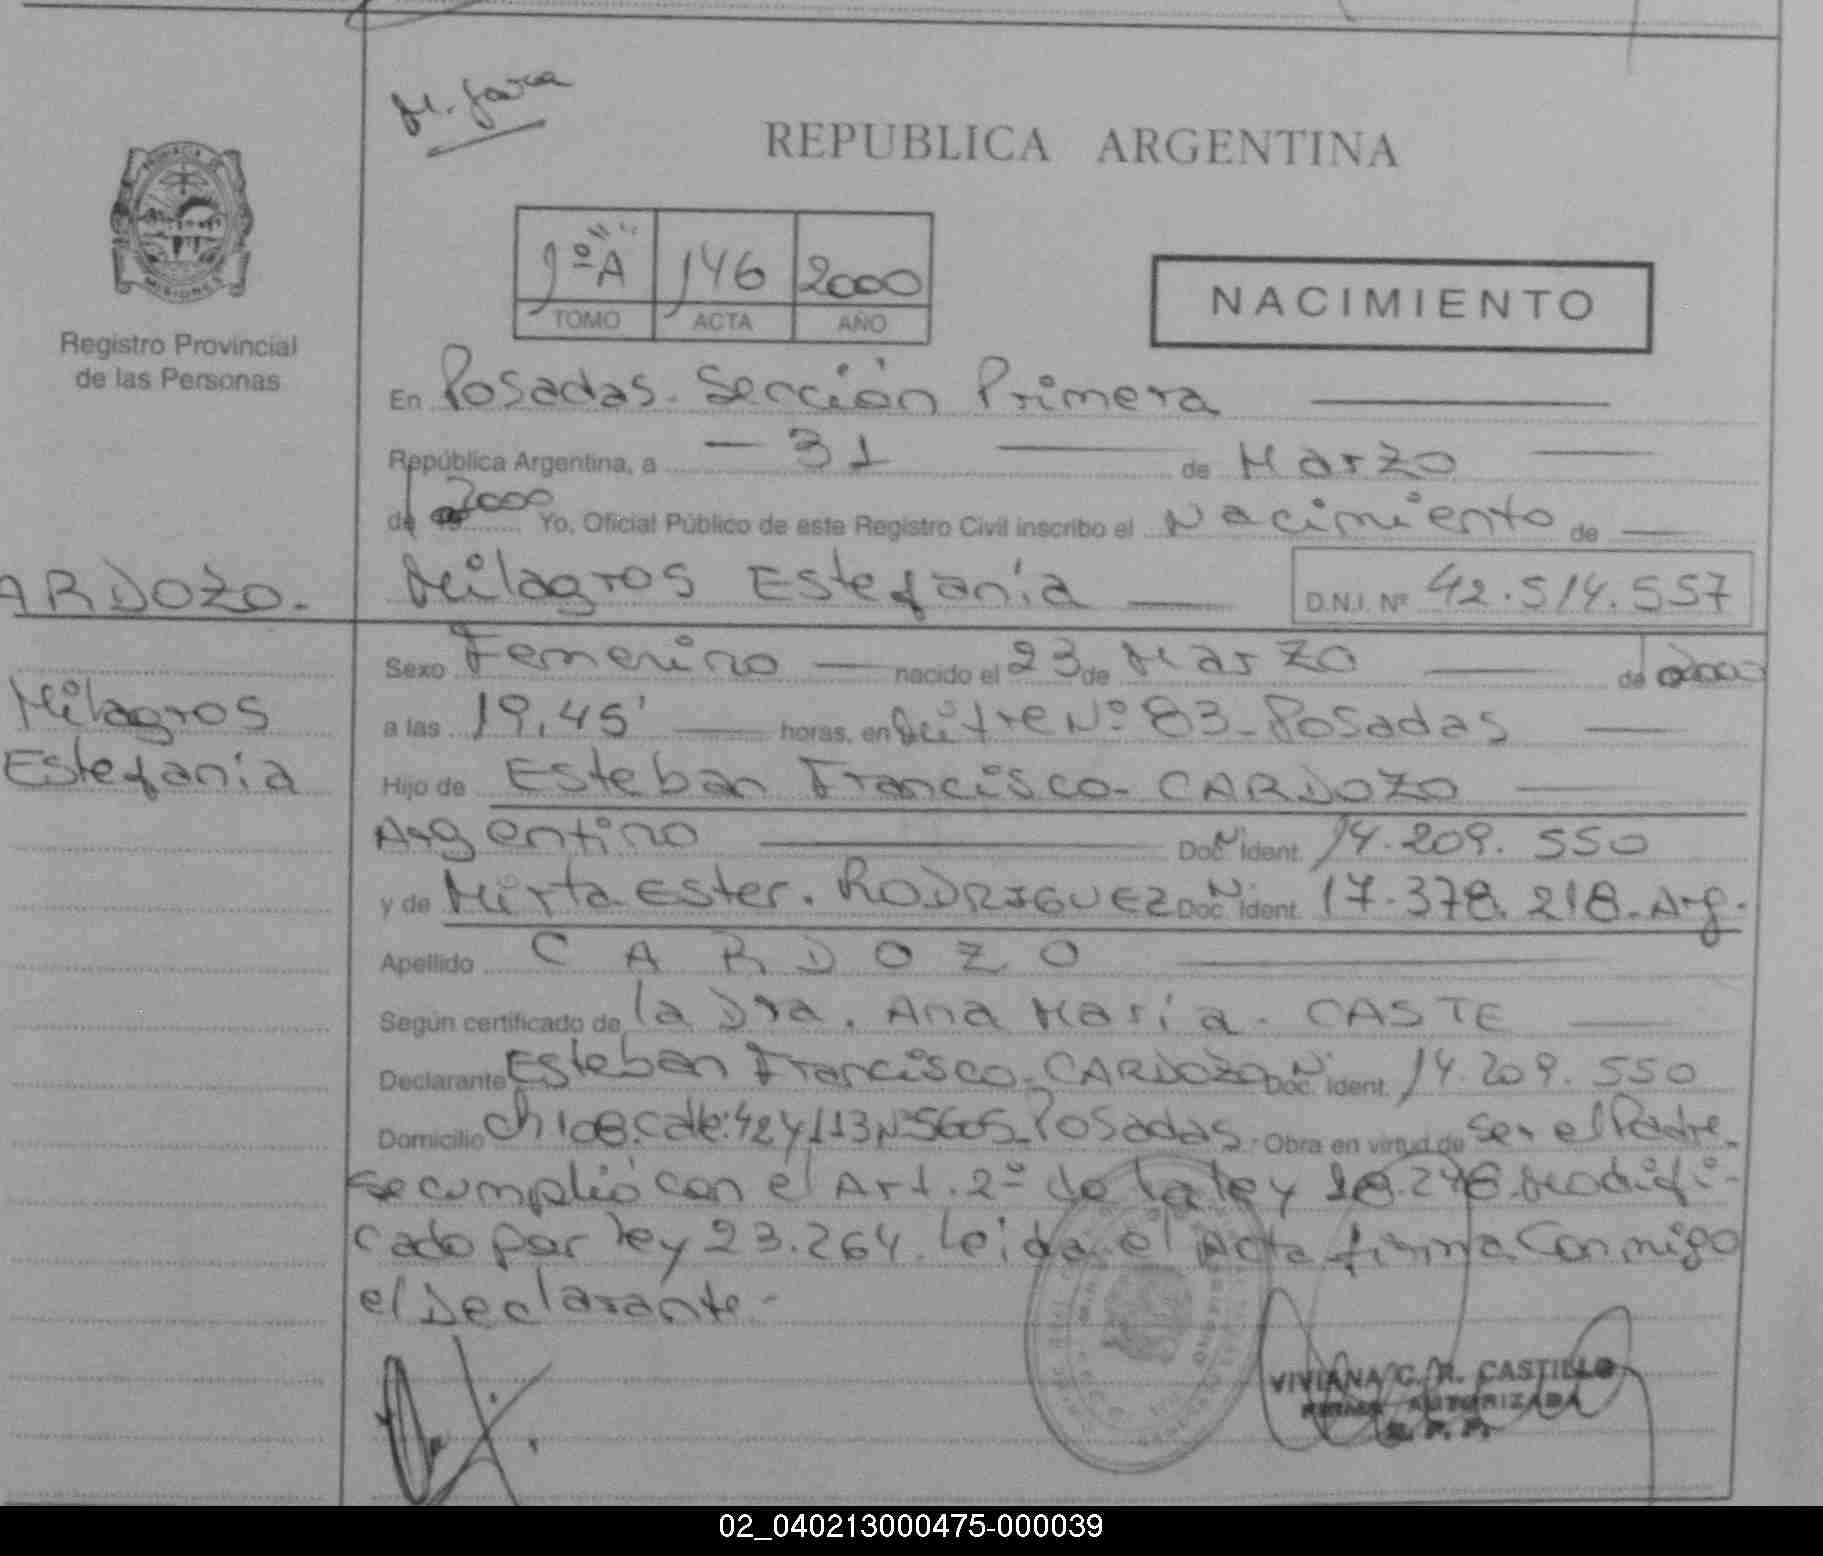 M. Jara
REPUBLICA ARGENTINA
PROVINCIA DE
MISIONES
Registro Provincial
de las Personas
1º "A" 146 2000
TOMO ACTA AÑO
NACIMIENTO
En Posadas. Sección Primera
República Argentina, a 31 de Marzo
de 2000 Yo, Oficial Público de este Registro Civil inscribo el Nacimiento de
ARDOZO. Milagros Estefanía D.N.I. Nº 42.514.557
Sexo Femenino nacido el 23 de Marzo de 2000
Milagros
a las 19,45' horas, en Mitre Nº 83 - Posadas
Estefanía
Hijo de Esteban Francisco - CARDOZO
Argentino Doc. Nº Ident. 14.209.550
y de Mirta Ester. RODRIGUEZ Doc. Nº Ident. 17.378.218 - Arg.
Apellido CARDOZO
Según certificado de la Dra. Ana María - CASTE
Declarante Esteban Francisco - CARDOZO Doc. Nº Ident. 14.209.550
Domicilio Ch 108. Calle: 424 y 113 Nº 5605 - Posadas - Obra en virtud de Ser el Padre -
Se cumplió con el Art. 2º de la ley 18.248 Modifi-
cado por ley 23.264. Leída el Acta firma Conmigo
el Declarante -
VIVIANA C. R. CASTILLO
FIRMA AUTORIZADA
R. P. P.
02_040213000475-000039